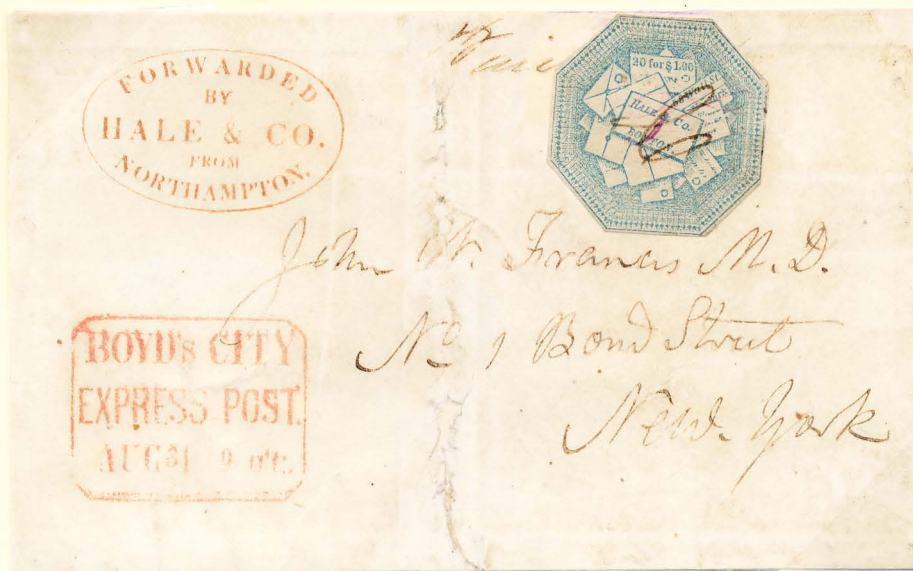 FORWARDED
BY
HALE & CO.
FROM
NORTHAMPTON.
20 for $1.00
HALE & Co.
BOSTON.
John W. Francis M.D.
No 1 Bond Street
New-York
BOYD's CITY
EXPRESS POST.
AUG 31 9